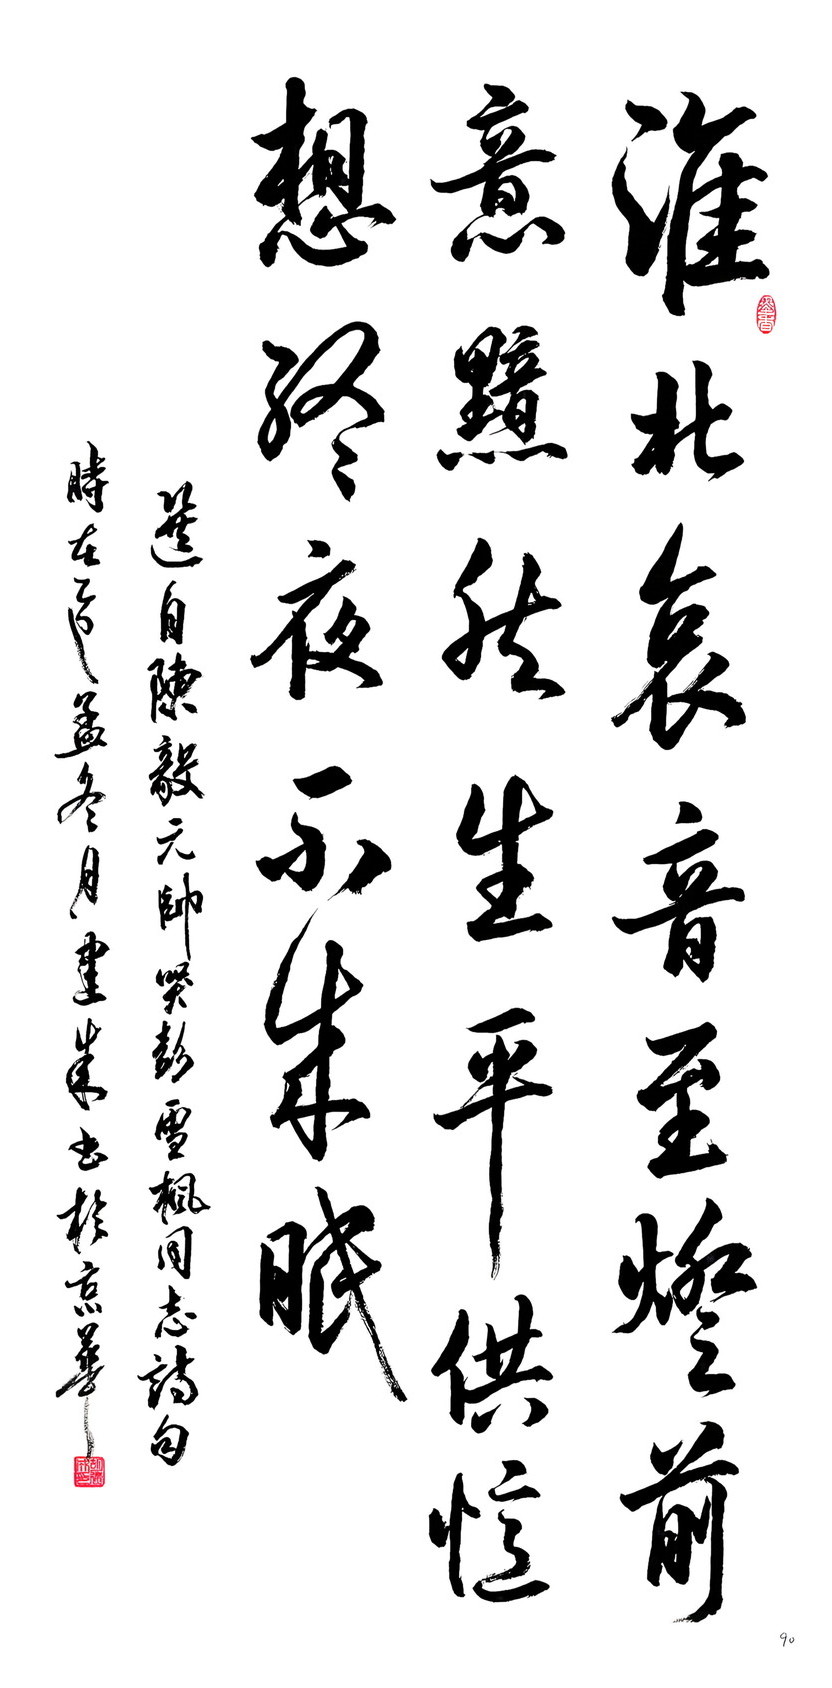 淮北哀音至燈前
意黯然生平供憶
想終夜不成眠
選自陳毅元帥哭彭雪楓同志詩句
時在孟冬月建成書於京華
墨香
90